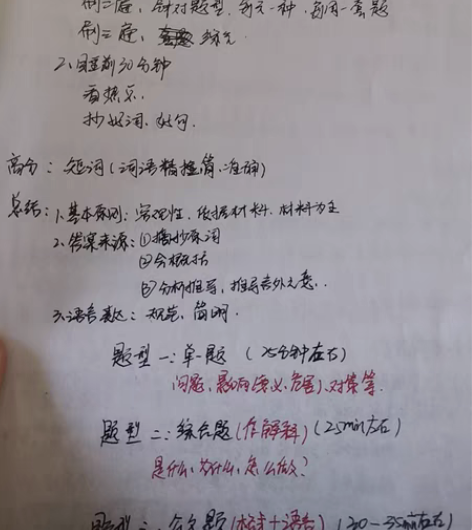 刷三遍，针对题型，每天一种，每周一套题
刷三遍，综合
2、睡前30分钟
看热点.
抄好词、好句.
高分：短词(词语精挫简、准确)
总结：1、基本原则：客观性、依据材料、材料为主
2、答案来源：①摘抄原词
②会概括
③分析推导，推导言外之意..
3、语言表达：规范、简明.
题型一：单一题 (25分钟左右)
问题、影响(意义、危害)、对策等.
题型二：综合题(作解释)(25min左右)
是什么、为什么、怎么做？
题型三：公文题(格式+语言)(30-35min左右)